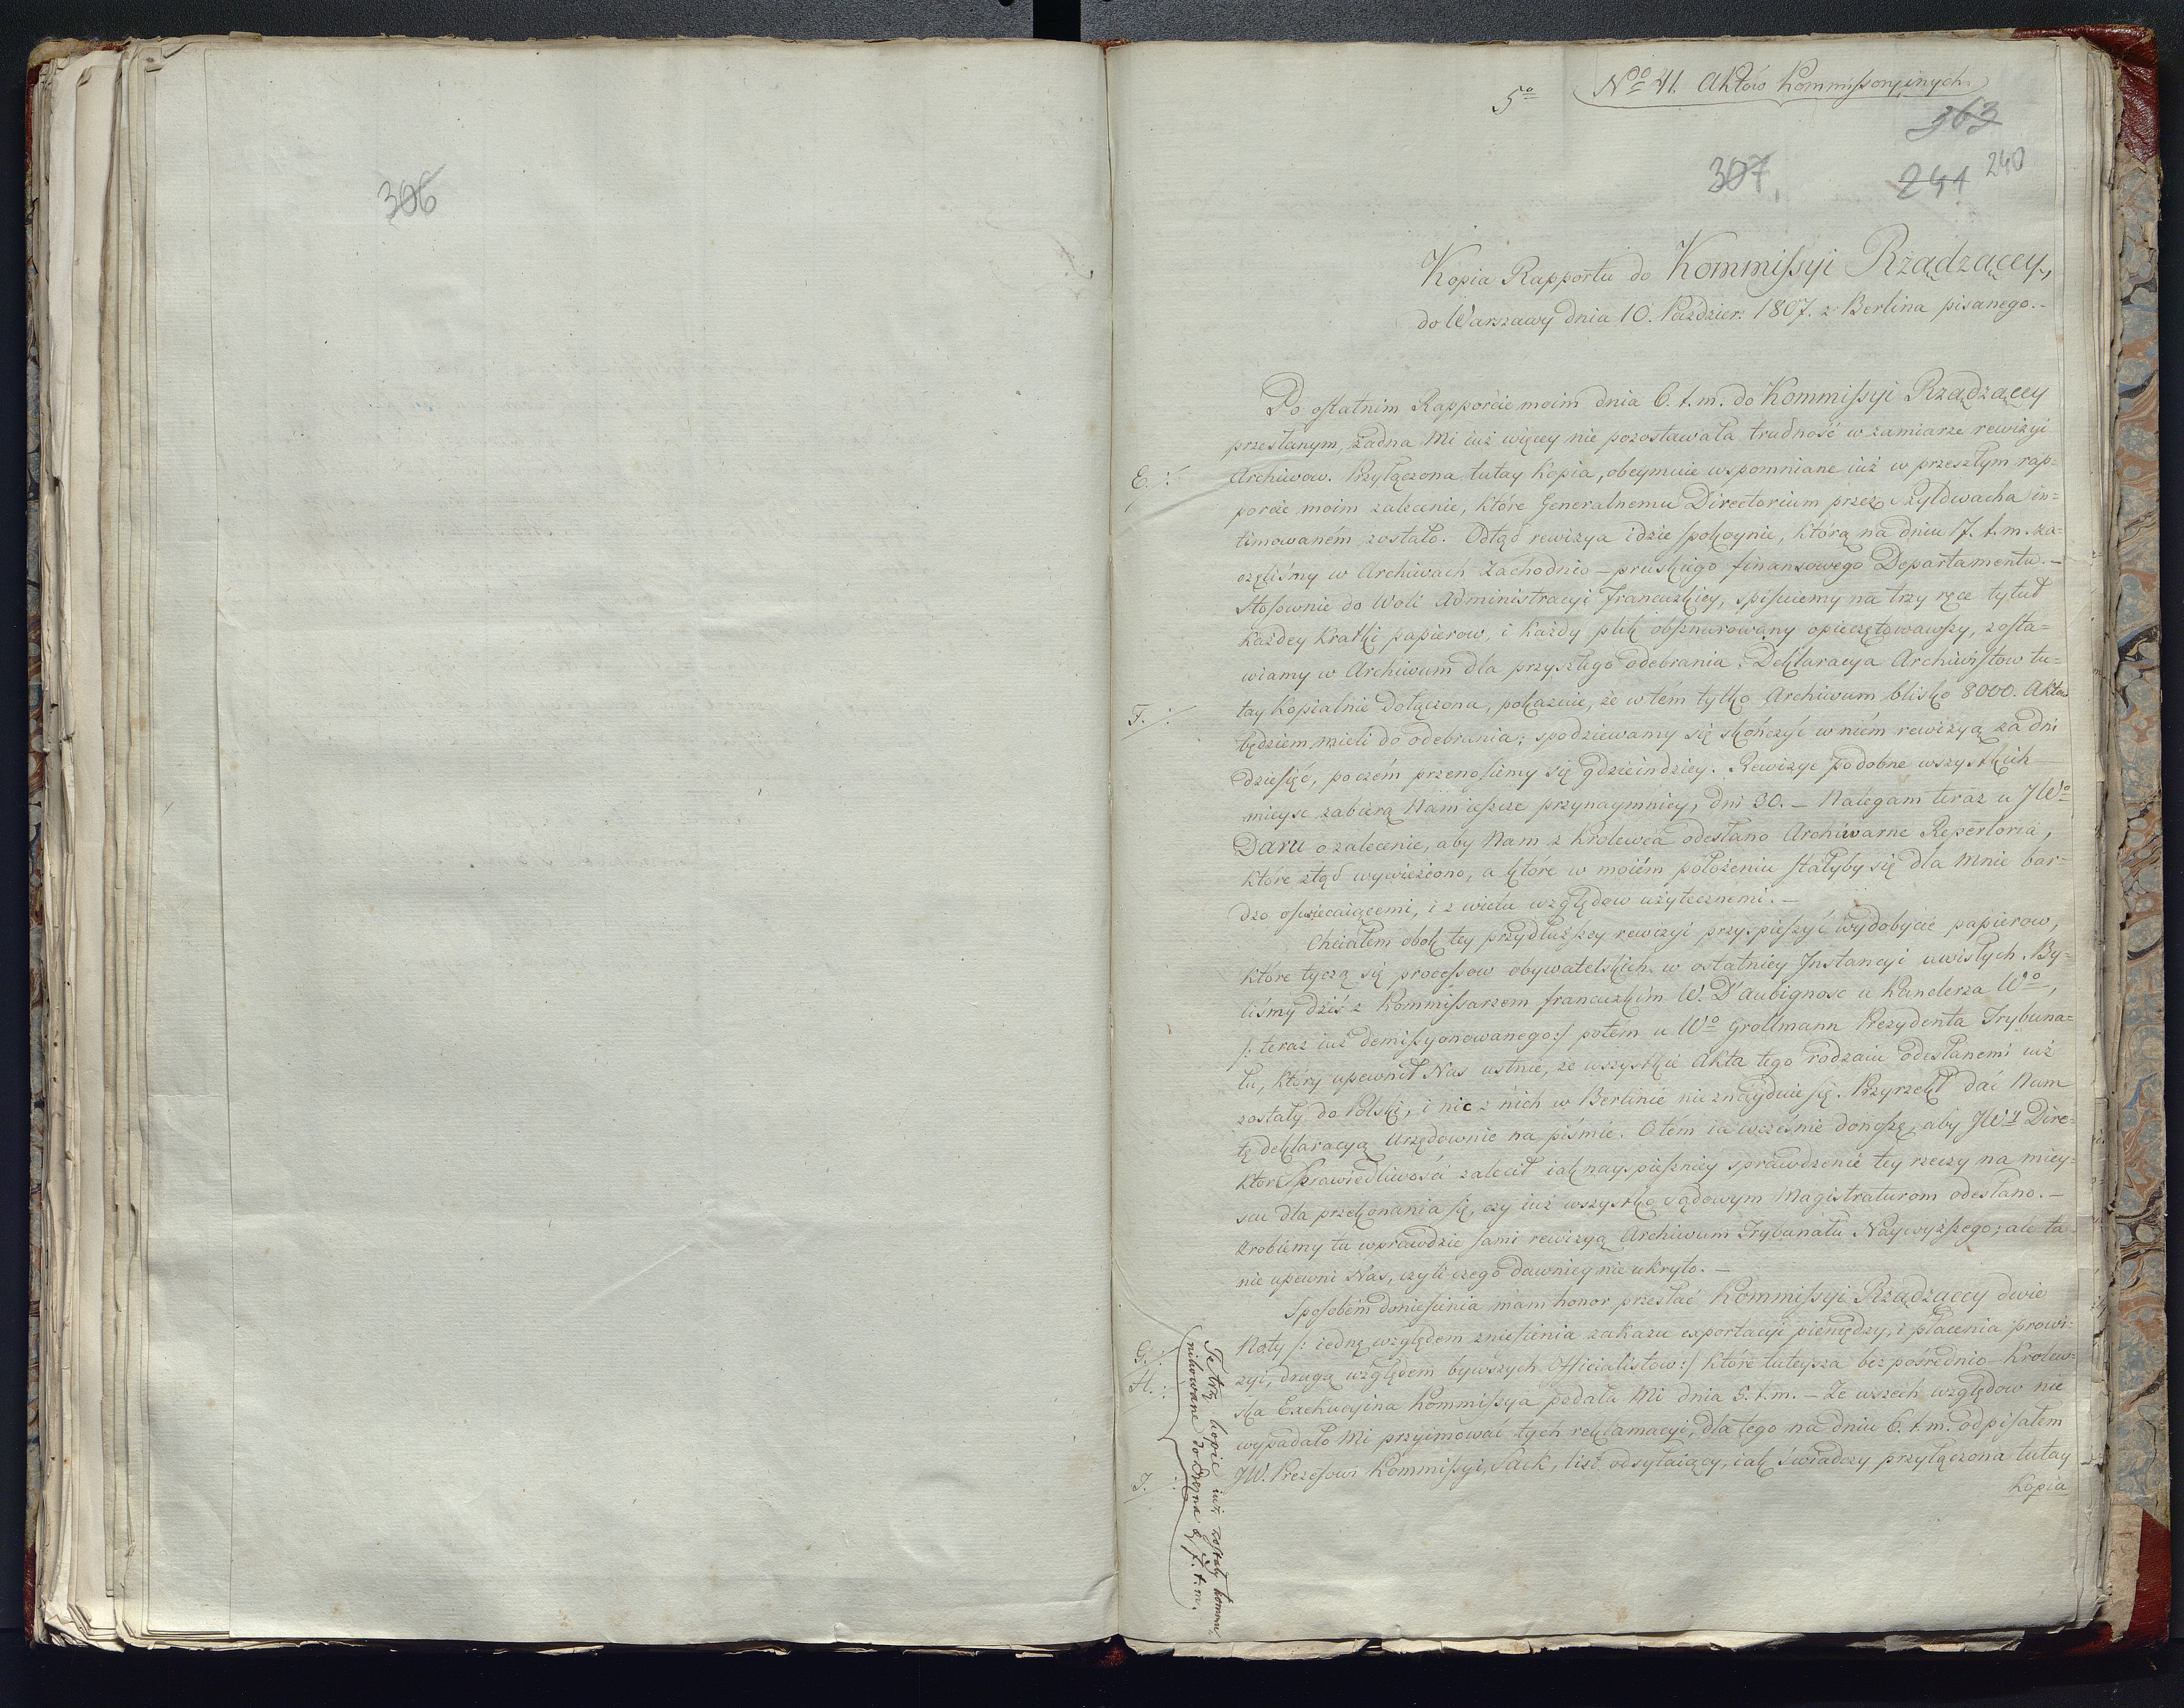 306
5o
No 41. Aktów Kommissyinych
363
307
241 240
Kopia Rapportu do Kommissyi Rządzącey,
do Warszawy dnia 10. Paździer: 1807. z Berlina pisanego.-
Po ostatnim Rapporcie moim dnia 6. t. m. do Kommissyi Rządzącey
przesłanym, żadna Mi iuż więcey nie pozostawała trudność w zamiarze rewizyi
E. :/ Archiwow. Przyłączona tutay Kopia, obeymuie wspomniane iuż w przeszłym rap-
porcie moim zalecenie, które Generalnemu Directorium przez Szyldwacha in=
timowaném zostało. Odtąd rewizya idzie spokoynie, którą na dniu 7. t. m. za=
częliśmy w Archiwach Zachodnio-pruskiego finansowego Departamentu. -
Stosownie do Woli Administracyi Francuzkiey, spisuiemy na trzy ręce tytuł
każdey Kratki papierow, i każdy plik obsznurowany opieczętowawszy, zosta=
wiamy w Archiwum dla przyszłego odebrania. Deklaracya Archiwistow tu=
F. :/ tay kopialnie dołączona, pokazuie, że w tém tylko Archiwum blisko 8000. Aktow
będziem mieli do odebrania; spodziewamy się skończyć w niém rewizyą za dni
dziesięć, poczém przenosiemy się gdzieindziey. Rewizye podobne wszystkich
mieysc zabiorą Nam ieszcze przynaymniey, dni 30. - Nalegam teraz u JWo
Daru o zalecenie, aby Nam z Krolewca odesłano Archiwarne Repertoria,
które ztąd wywieziono, a które w moiém położeniu stałyby się dla Mnie bar=
dzo oświecaiącemi, i z wielu względow użytecznemi. -
Chciałem obok tey przydłuższey rewizyi przyspieszyć wydobycie papierow,
które tyczą się processow obywatelskich w ostatniey Instancyi uwisłych. By=
liśmy dziś z Kommissarzem francuzkim W. D'aubignosc u Kanclerza Wo,
/: teraz iuż demissyonowanego:/ potém u Wo Grollmann Prezydenta Trybuna=
łu, który upewnił Nas ustnie, że wszystkie Akta tego rodzaiu odesłanemi iuż
zostały do Polski, i nic z nich w Berlinie nie znayduie się. Przyrzekł dać Nam
tę deklaracyą urzędownie na piśmie. O tém ia wcześnie donoszę, aby JWy Dire-
ktor Sprawiedliwości zalecił iak nayspieszniey sprawdzenie tey rzeczy na miey=
scu dla przekonania się, czy iuż wszystko sądowym Magistraturom odesłano. -
Zrobiemy tu wprawdzie sami rewizyą Archiwum Trybunału Naywyższego; ale ta
nie upewni Nas, czyli czego dawniey nie ukryto. -
Sposobém doniesienia mam honor przesłać Kommissyi Rządzącey dwie
G. :/ Noty /: iednę względem zniesienia zakazu exportacyi pieniędzy, i płacenia prowi=
H. :/ zyi, drugą względem bywszych Officialistow:/ które tuteysza bez pośrednio-Krolew=
ska Exekucyina Kommissya podała Mi dnia 5. t. m. - Ze wszech względow nie
wypadało Mi przyimować tych reklamacyi, dla tego na dniu 6. t. m. odpisałem
I. :/ JW. Prezesowi Kommissyi, Sack, list odsyłaiący, iak świadczy przyłączona tutay
Kopia
Te trzy kopie iuż zostały kommu=
nikowane do Drezna d. 7. t. m.